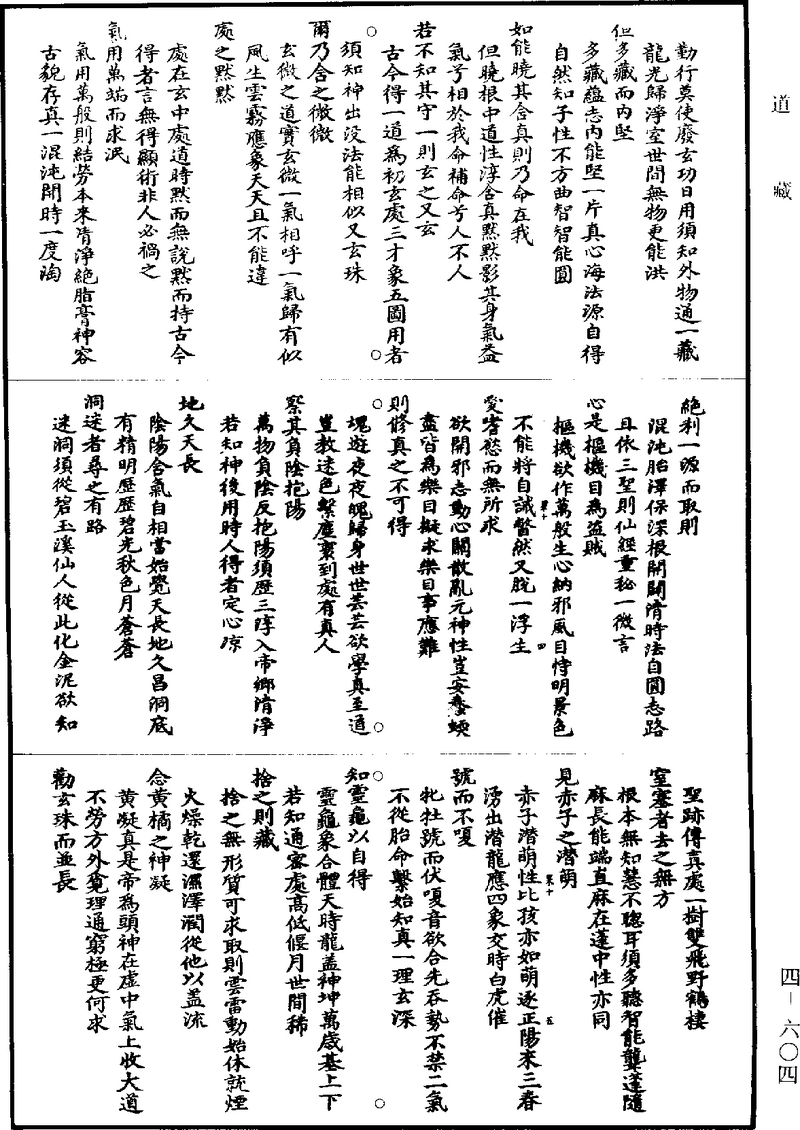 道藏
勤行莫使廢玄功日用須知外物通一藏
龍光歸淨室世間無物更能洪
但多藏而內堅
多藏蘊志內能堅一片真心海法源自得
自然知子性不方曲智智能圓
如能曉其含真則乃命在我
但曉根中道性淳含真默默影其身氣益
氣子相於我命補命考人不人
若不知其守一則玄之又玄
古今得一道為初玄處三才象五圖用者
須知神出沒法能相似又玄珠
爾乃含之微微
玄微之道實玄微一氣相呼一氣歸有似
風生雲霧應象天天且不能違
處之默默
處在玄中處道時默而無說默而持古今
得者言無得顯術非人必禍之
氣用萬端而求泯
氣用萬般則結勞本來清淨絕脂膏神容
古貌存真一混沌開時一度淘
絕利一源而取則
混沌胎澤保深根開闢清時法自圓志路
且依三聖則仙經重秘一微言
心是樞機目為盜賊
樞機欲作萬般生心納邪風目悖明景色
不能將自誡瞥然又脫一浮生
愛嗜慾而無所求
欲開邪志動心關散亂元神性豈安蠢蝡
盡皆為樂日擬求樂目事應難
則修真之不可得
魂遊夜夜魄歸身世世芸芸欲學真至道
豈教迷色繫塵裹到處有真人
察其負陰抱陽
萬物負陰反抱陽須歷三淳入帝鄉清淨
若知神後用時人得者定心涼
地久天長
陰陽含氣自相當始覺天長地久昌洞底
有精明歷歷碧光秋色月蒼蒼
洞迷者尋之有路
迷洞須從碧玉溪仙人從此化金泥欲知
聖跡傳真處一樹雙飛野鶴棲
室塞者去之無方
根本無知慧不聰耳須多聽智能龔蓬隨
麻長能端直麻在蓬中性亦同
見赤子之潛萌
赤子潛萌性比孩亦如萌逐正陽來三春
湧出潛龍應四象交時白虎催
號而不嗄
牝牡號而伏嗄音欲合先吞勢不禁二氣
不從胎命繫始知真一理玄深
知靈龜以自得
靈龜象合體天時龍蓋神坤萬歲基上下
若知通密處高低偃月世間稀
捨之則藏
捨之無形質可求取則雲雷動始休就煙
火燥乾還濕澤潤從他以盖流
念黃橘之神凝
黃凝真是帝為頭神在虛中氣上收大道
不勞方外覓理通窮極更何求
勸玄珠而並長
四－六〇四